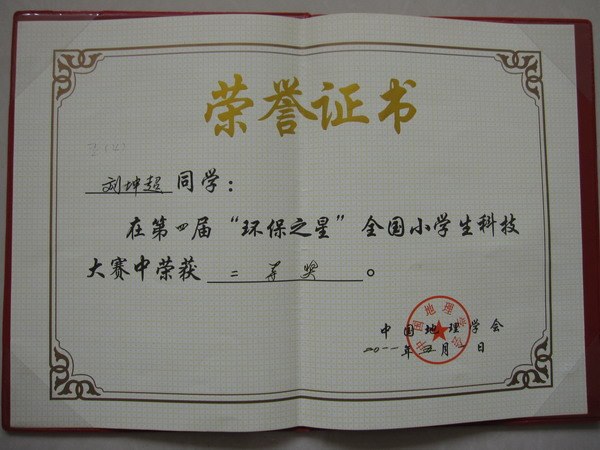 荣誉证书
五(4)
刘坤超同学：
在第四届“环保之星”全国小学生科技
大赛中荣获 二等奖 。
中国地理学会
二〇一一年五月 日
中国地理学会